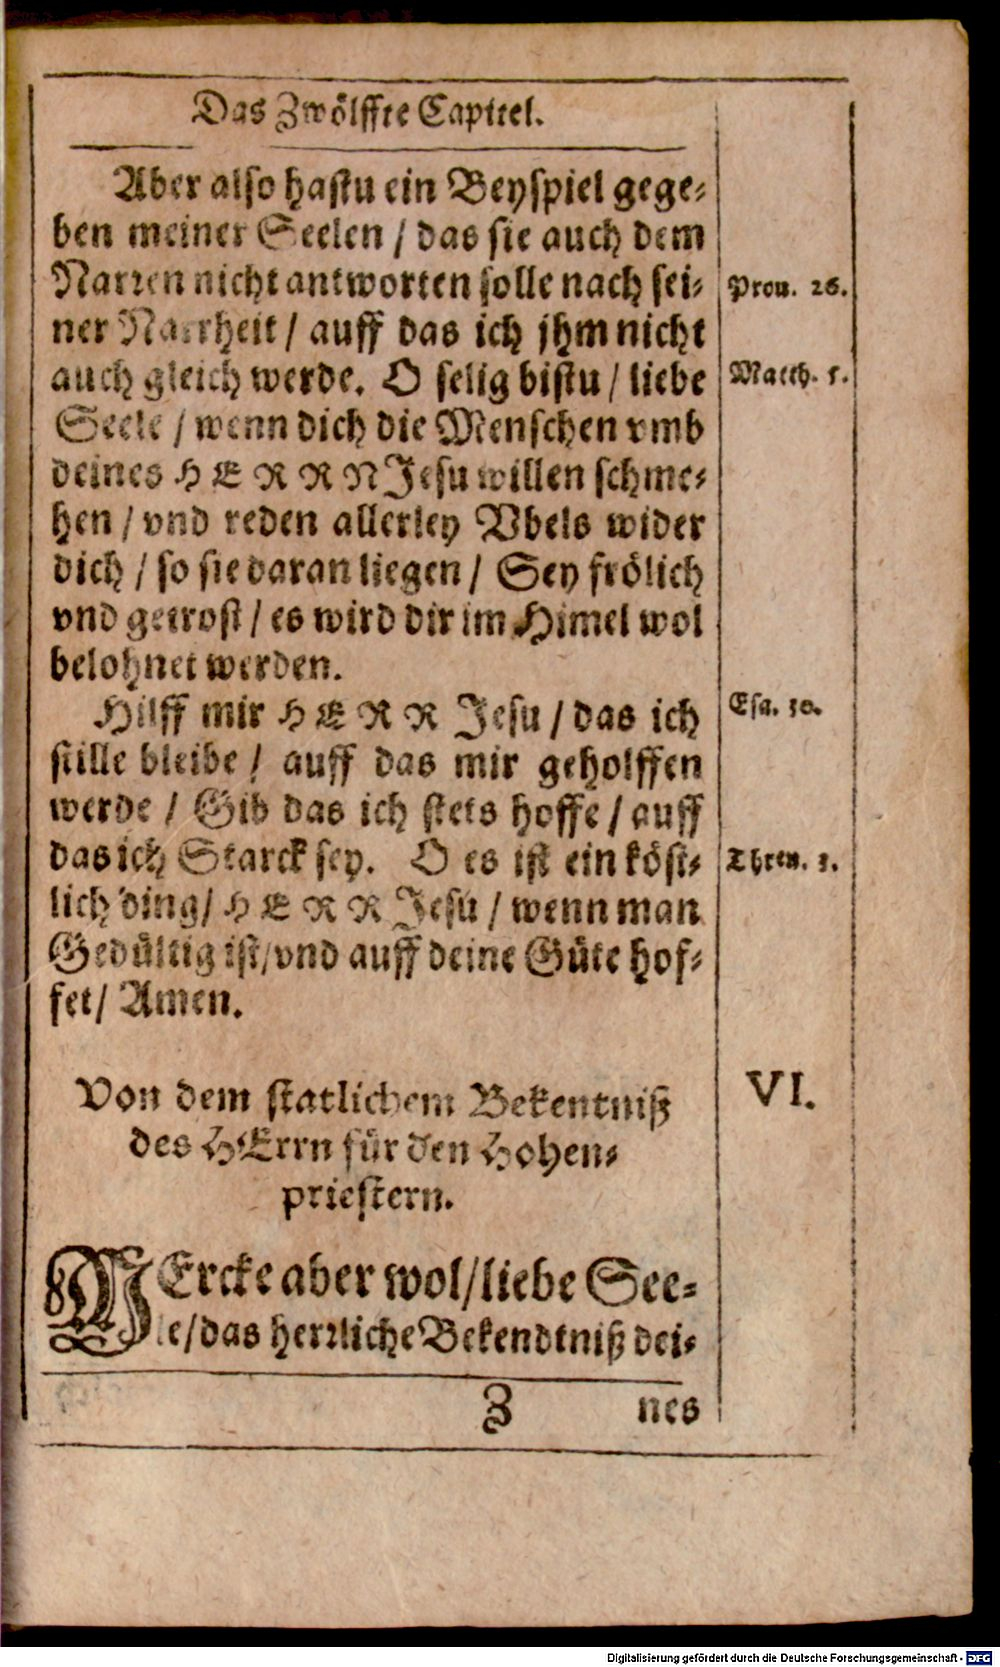 Das Zwölffte Capitel.
Aber also hastu ein Beyspiel gege-
ben meiner Seelen / das sie auch dem
Narren nicht antworten solle nach sei-
Prou. 26.
ner Narrheit / auff das ich jhm nicht
auch gleich werde. O selig bistu / liebe
Matth. 5.
Seele / wenn dich die Menschen vmb
deines HERRN Jesu willen schme-
hen / vnd reden allerley Vbels wider
dich / so sie daran liegen / Sey frölich
vnd getrost / es wird dir im Himel wol
belohnet werden.
Hilff mir HERR Jesu / das ich
Esa. 30.
stille bleibe / auff das mir geholffen
werde / Gib das ich stets hoffe / auff
das ich Starck sey. O es ist ein köst-
Thren. 3.
lich ding / HERR Jesu / wenn man
Gedültig ist / vnd auff deine Güte hof-
fet / Amen.
Von dem statlichem Bekentniß
VI.
des HErrn für den Hohen-
priestern.
MErcke aber wol / liebe See-
le / das herrliche Bekendtniß dei-
Z nes
Digitalisierung gefördert durch die Deutsche Forschungsgemeinschaft - DFG